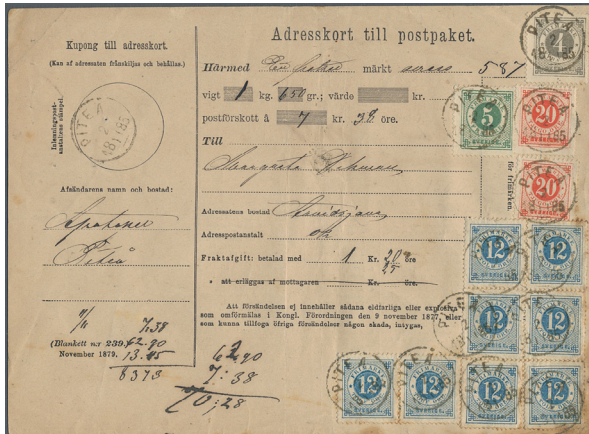 Kupong till adresskort.
(Kan af adressaten frånskiljas och behållas.)
Inlemningspost-
anstaltens stämpel.
PITEÅ
18 1 85
Afsändarens namn och bostad:
Apotheket
Piteå
7,38
(Blankett n:r 239.
62-90
November 1879.
13.45
8373
Adresskort till postpaket.
Härmed
märkt
587
vigt 1 kg. 650 gr.; värde kr.
postförskott å 7 kr. 38 öre.
Till
Margreta
Adressatens bostad Arvidsjaur
Adresspostanstalt
Fraktafgift: betalad med 1 Kr. 20 öre
25
• att erläggas af mottagaren Kr. öre
för frimärken.
Att försändelsen ej innehåller sådana eldfarliga eller explosiva
som omförmälas i Kongl. Förordningen den 9 november 1877, eller
som kunna tillfoga öfriga försändelser någon skada, intygas,
62,90
7:38
70;28
PITEÅ
4
5
SVERIGE.
20
20
12
12
12
12
12
12
12
12